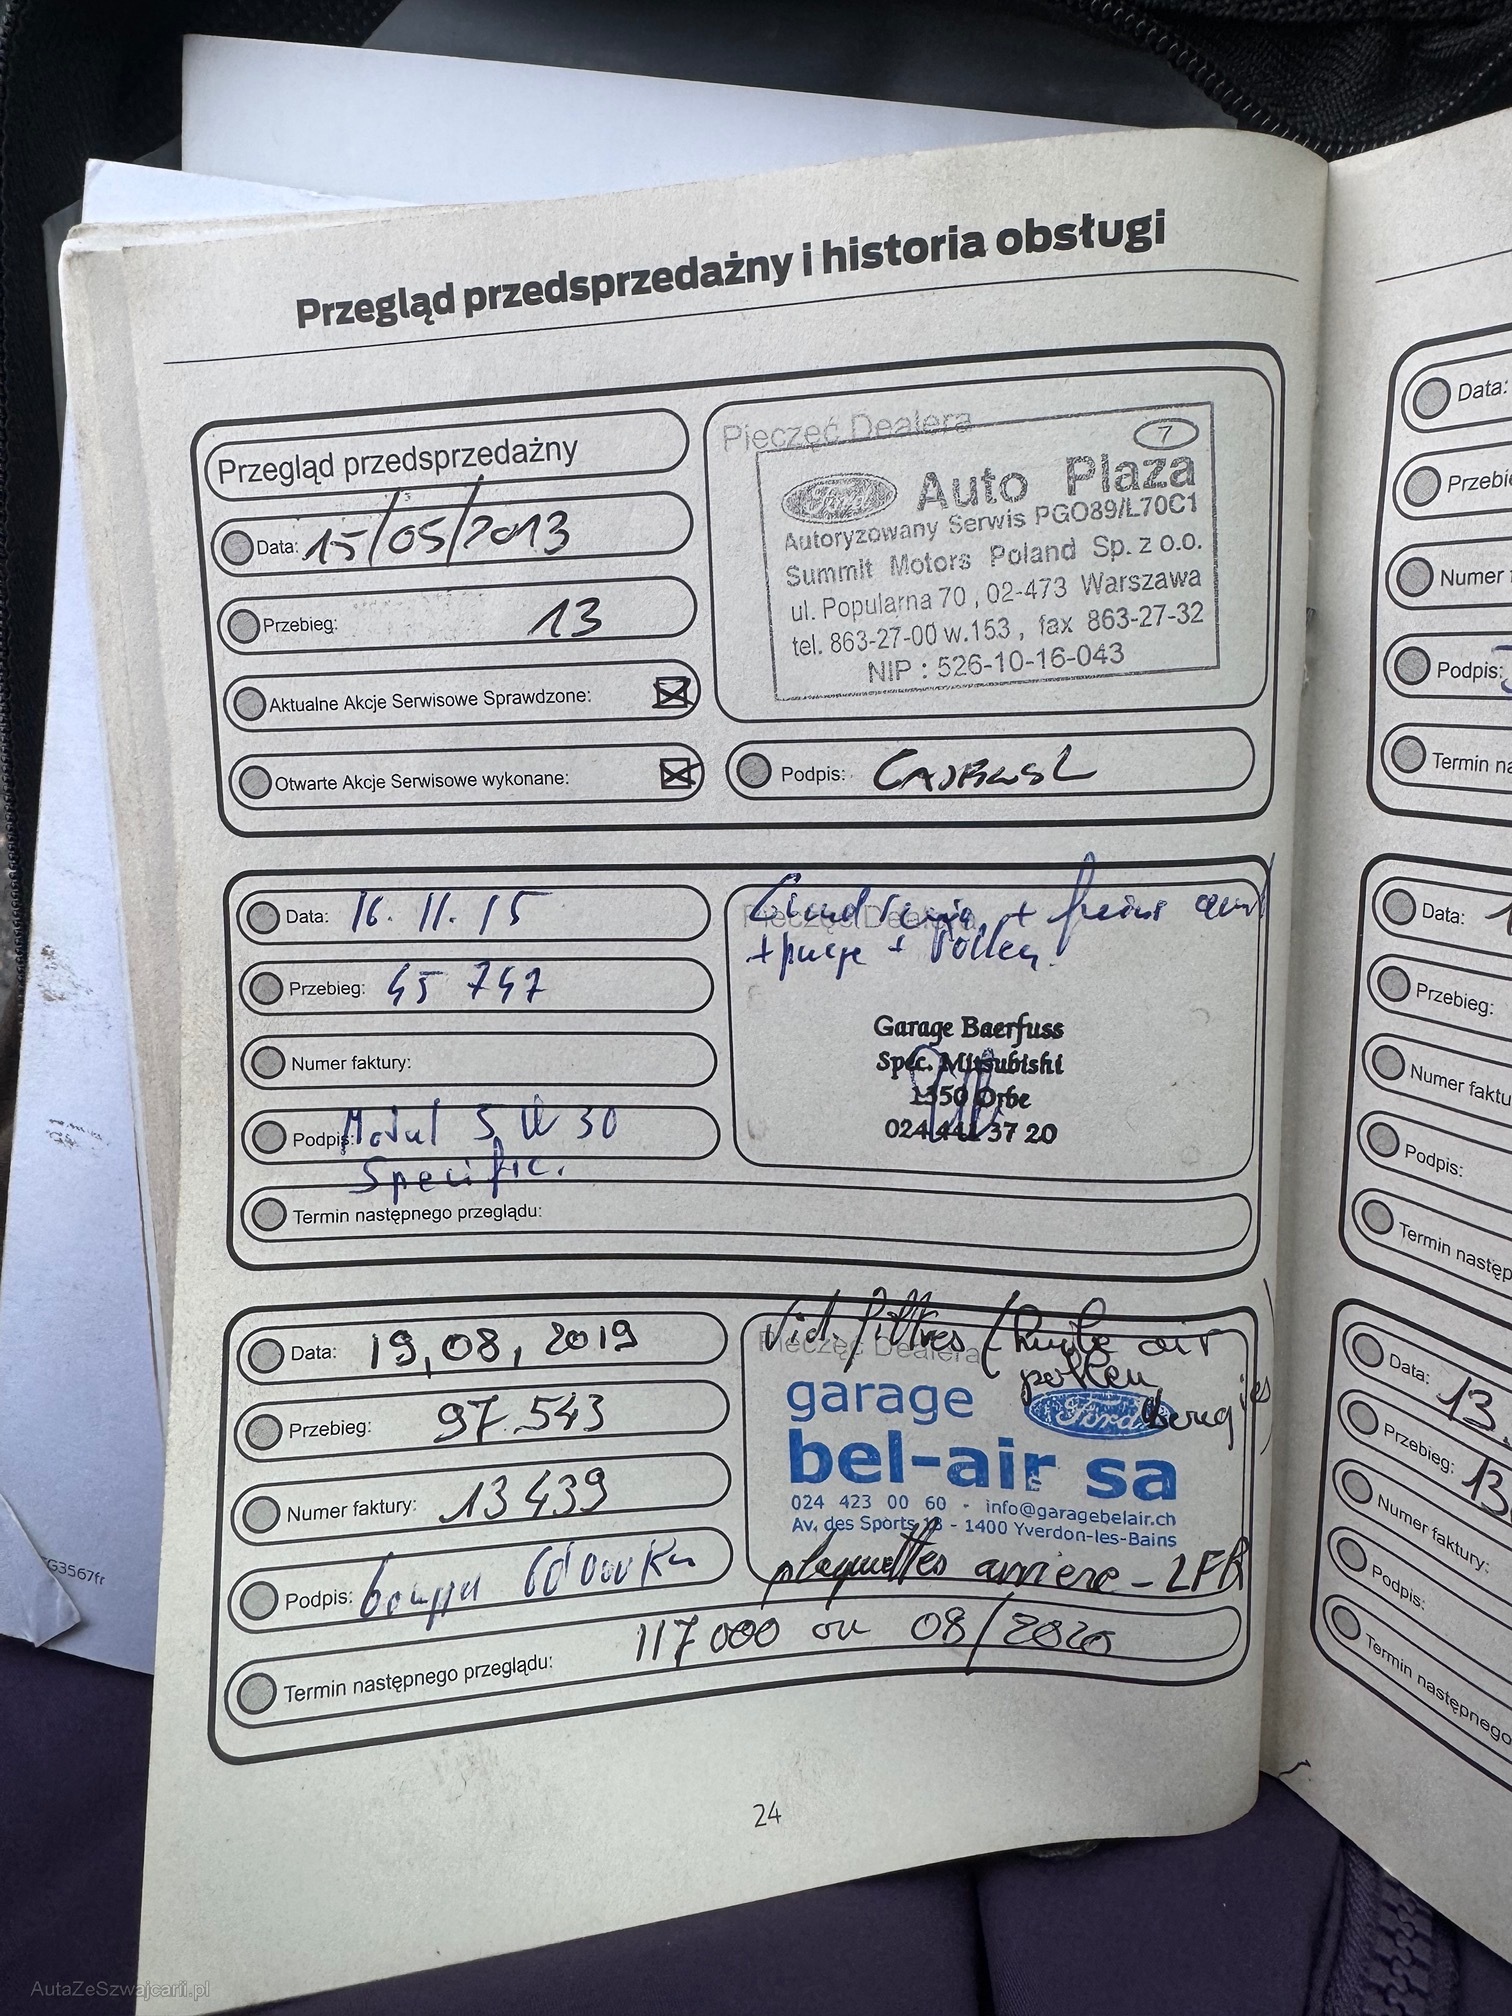 Przegląd przedsprzedażny i historia obsługi
Przegląd przedsprzedażny
Data: 15/05/2013
Przebieg: 13
Aktualne Akcje Serwisowe Sprawdzone:
Otwarte Akcje Serwisowe wykonane:
Pieczęć Dealera
7
Ford Auto Plaza
Autoryzowany Serwis PGO89/L70C1
Summit Motors Poland Sp. z o.o.
ul. Popularna 70, 02-473 Warszawa
tel. 863-27-00 w.153, fax 863-27-32
NIP : 526-10-16-043
Podpis:
Data: 16.11.15
Przebieg: 45 747
Numer faktury:
Podpis: Motul 5 W 30
Specific.
Termin następnego przeglądu:
Pieczęć Dealera
+ freins
+ purge + Pollen.
Garage Baerfuss
Spéc. Mitsubishi
1350 Orbe
024 441 37 20
Data: 19,08,2019
Przebieg: 97.543
Numer faktury: 13439
Podpis:
Termin następnego przeglądu: 117000 ou 08/2020
Vid. filtres (huile air
Pieczęć Dealera
pollen
garage Ford
bel-air sa
024 423 00 60 - info@garagebelair.ch
Av. des Sports 13 - 1400 Yverdon-les-Bains
plaquettes arrière - LFR
24
Data:
Numer
Podpis:
Termin
Data:
Przebieg:
Numer
Podpis:
Termin
Data: 13
Przebieg: 13
Numer faktury:
Podpis:
Termin następnego
G3567fr
AutaZeSzwajcarii.pl